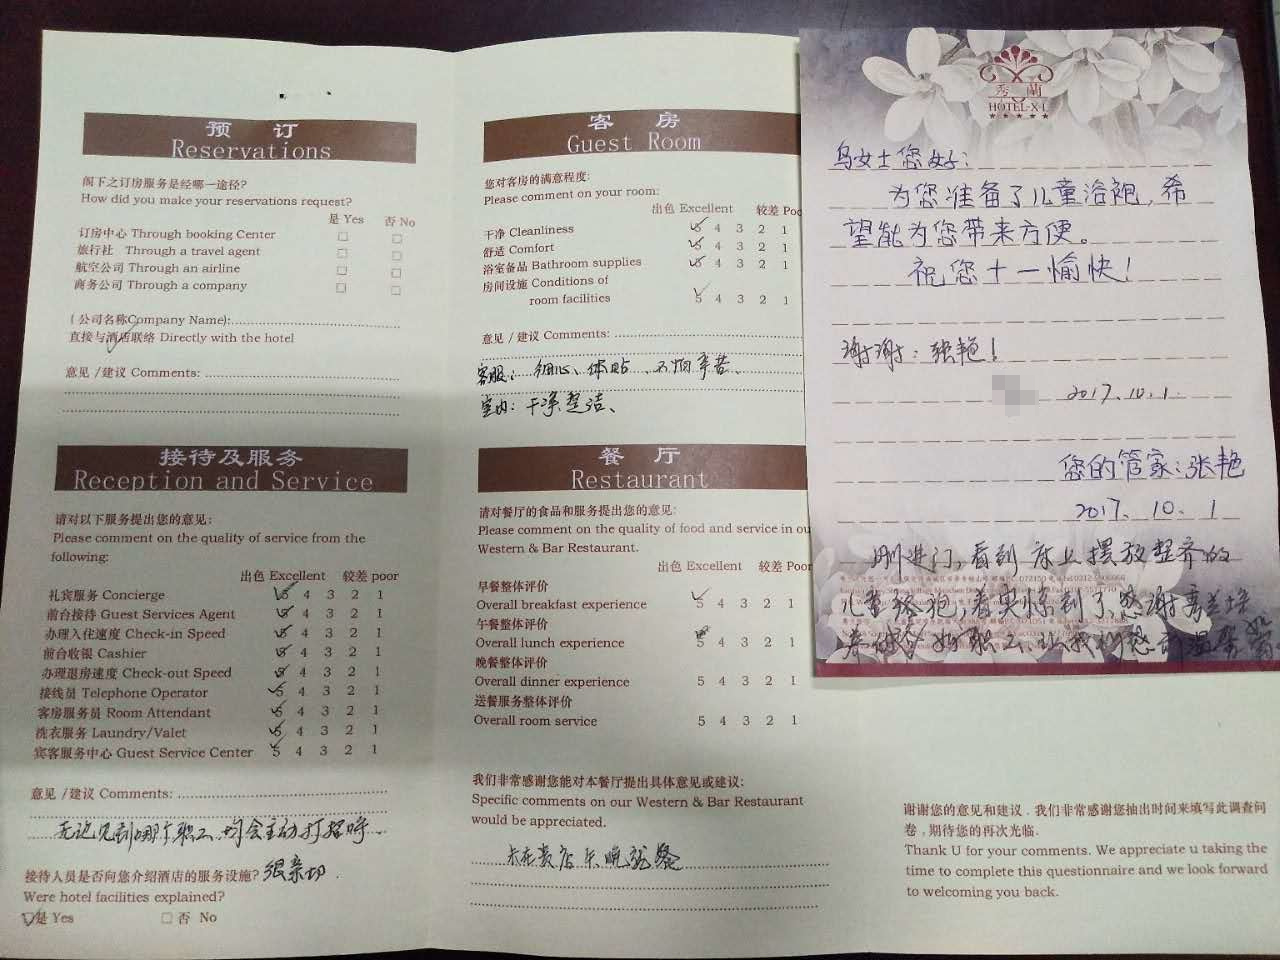 预 订
Reservations
阁下之订房服务是经哪一途径?
How did you make your reservations request?
是 Yes 否 No
订房中心 Through booking Center □ □
旅行社 Through a travel agent □ □
航空公司 Through an airline □ □
商务公司 Through a company □ □
(公司名称Company Name):
直接与酒店联络 Directly with the hotel
意见 /建议 Comments:
接待及服务
Reception and Service
请对以下服务提出您的意见:
Please comment on the quality of service from the
following:
出色 Excellent 较差 poor
礼宾服务 Concierge 5 4 3 2 1
前台接待 Guest Services Agent 5 4 3 2 1
办理入住速度 Check-in Speed 5 4 3 2 1
前台收银 Cashier 5 4 3 2 1
办理退房速度 Check-out Speed 5 4 3 2 1
接线员 Telephone Operator 5 4 3 2 1
客房服务员 Room Attendant 5 4 3 2 1
洗衣服务 Laundry/Valet 5 4 3 2 1
宾客服务中心 Guest Service Center 5 4 3 2 1
意见 /建议 Comments:
无论见到哪个职工,均会主动打招呼、
很亲切.
接待人员是否向您介绍酒店的服务设施?
Were hotel facilities explained?
□是 Yes □ 否 No
客 房
Guest Room
您对客房的满意程度:
Please comment on your room:
出色 Excellent 较差 Poo
干净 Cleanliness 5 4 3 2 1
舒适 Comfort 5 4 3 2 1
浴室备品 Bathroom supplies 5 4 3 2 1
房间设施 Conditions of
room facilities 5 4 3 2 1
意见 /建议 Comments:
客服:细心、体贴、不怕辛苦、
室内:干净整洁、
餐 厅
Restaurant
请对餐厅的食品和服务提出您的意见:
Please comment on the quality of food and service in ou
Western & Bar Restaurant.
出色 Excellent 较差 Poor
早餐整体评价
Overall breakfast experience 5 4 3 2 1
午餐整体评价
Overall lunch experience 5 4 3 2 1
晚餐整体评价
Overall dinner experience 5 4 3 2 1
送餐服务整体评价
Overall room service 5 4 3 2 1
我们非常感谢您能对本餐厅提出具体意见或建议:
Specific comments on our Western & Bar Restaurant
would be appreciated.
未在贵店午晚就餐
秀 蘭
HOTEL·X·L
★★★★★
乌女士您好:
为您准备了儿童浴袍,希
望能为您带来方便。
祝您十一愉快!
谢谢:张艳!
2017.10.1.
您的管家:张艳
2017.10.1
刚进门,看到床上摆放整齐的
儿童浴袍,着实惊到了,感谢秀兰培
谢谢您的意见和建议．我们非常感谢您抽出时间来填写此调查问
卷,期待您的再次光临.
Thank U for your comments. We appreciate u taking the
time to complete this questionnaire and we look forward
to welcoming you back.